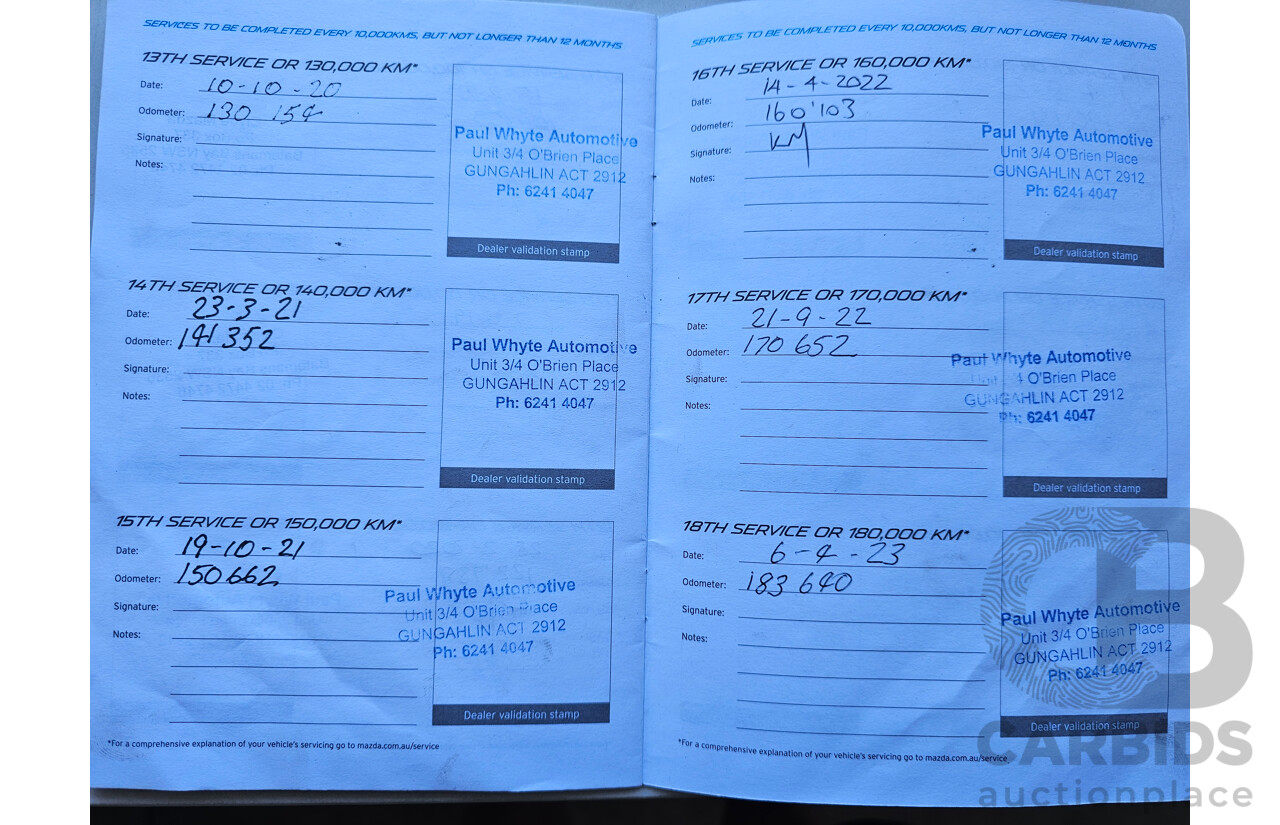 SERVICES TO BE COMPLETED EVERY 10,000KMS, BUT NOT LONGER THAN 12 MONTHS
13TH SERVICE OR 130,000 KM*
Date: 10-10-20
Odometer: 130 154
Signature:
Notes:
Paul Whyte Automotive
Unit 3/4 O'Brien Place
GUNGAHLIN ACT 2912
Ph: 6241 4047
Dealer validation stamp
14TH SERVICE OR 140,000 KM*
Date: 23-3-21
Odometer: 141 352
Signature:
Notes:
Paul Whyte Automotive
Unit 3/4 O'Brien Place
GUNGAHLIN ACT 2912
Ph: 6241 4047
Dealer validation stamp
15TH SERVICE OR 150,000 KM*
Date: 19-10-21
Odometer: 150662
Signature:
Notes:
Paul Whyte Automotive
Unit 3/4 O'Brien Place
GUNGAHLIN ACT 2912
Ph: 6241 4047
Dealer validation stamp
*For a comprehensive explanation of your vehicle's servicing go to mazda.com.au/service
SERVICES TO BE COMPLETED EVERY 10,000KMS, BUT NOT LONGER THAN 12 MONTHS
16TH SERVICE OR 160,000 KM*
Date: 14-4-2022
Odometer: 160'103
Signature: KM
Notes:
Paul Whyte Automotive
Unit 3/4 O'Brien Place
GUNGAHLIN ACT 2912
Ph: 6241 4047
Dealer validation stamp
17TH SERVICE OR 170,000 KM*
Date: 21-9-22
Odometer: 170 652
Signature:
Notes:
Paul Whyte Automotive
4 O'Brien Place
GUNGAHLIN ACT 2912
Ph: 6241 4047
Dealer validation stamp
18TH SERVICE OR 180,000 KM*
Date: 6-4-23
Odometer: 183 640
Signature:
Notes:
Paul Whyte Automotive
Unit 3/4 O'Brien Place
GUNGAHLIN ACT 2912
Ph: 6241 4047
Dealer validation stamp
*For a comprehensive explanation of your vehicle's servicing go to mazda.com.au/service
CARBIDS
auctionplace